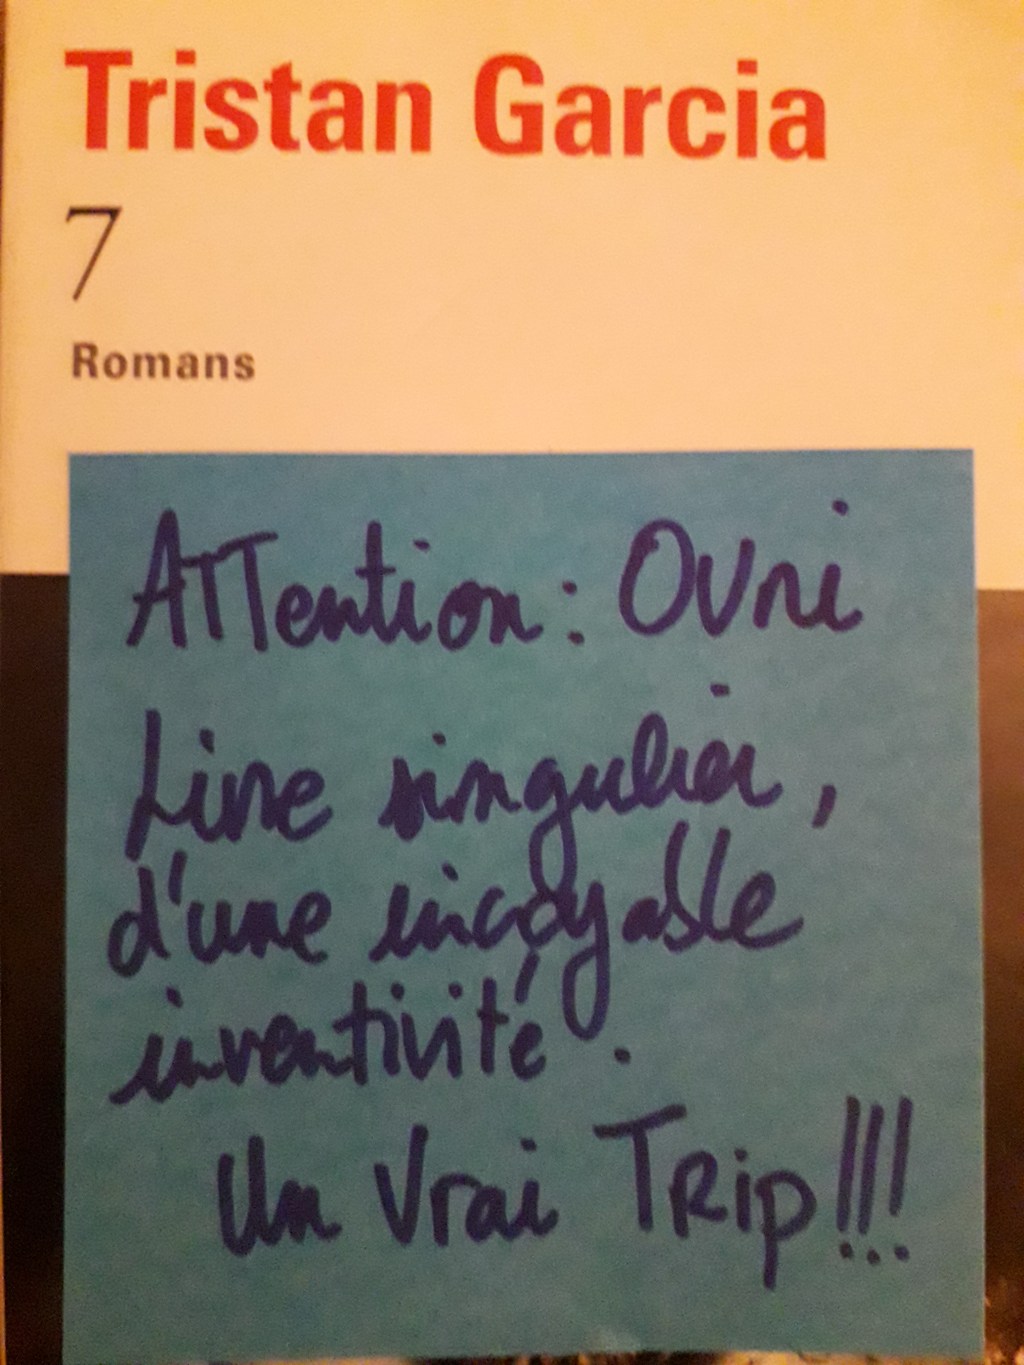 Tristan Garcia
7
Romans
ATTention : OVni
Livre singulier,
d'une incroyable
inventivité.
Un Vrai TRip !!!